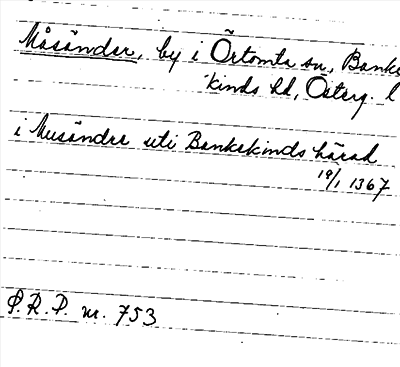 Måsänder, by i Örtomta sn, Banke
kinds hd, Österg. l
i Musändre uti Bankekinds härad
19/1 1367
S.R.P. nr. 753